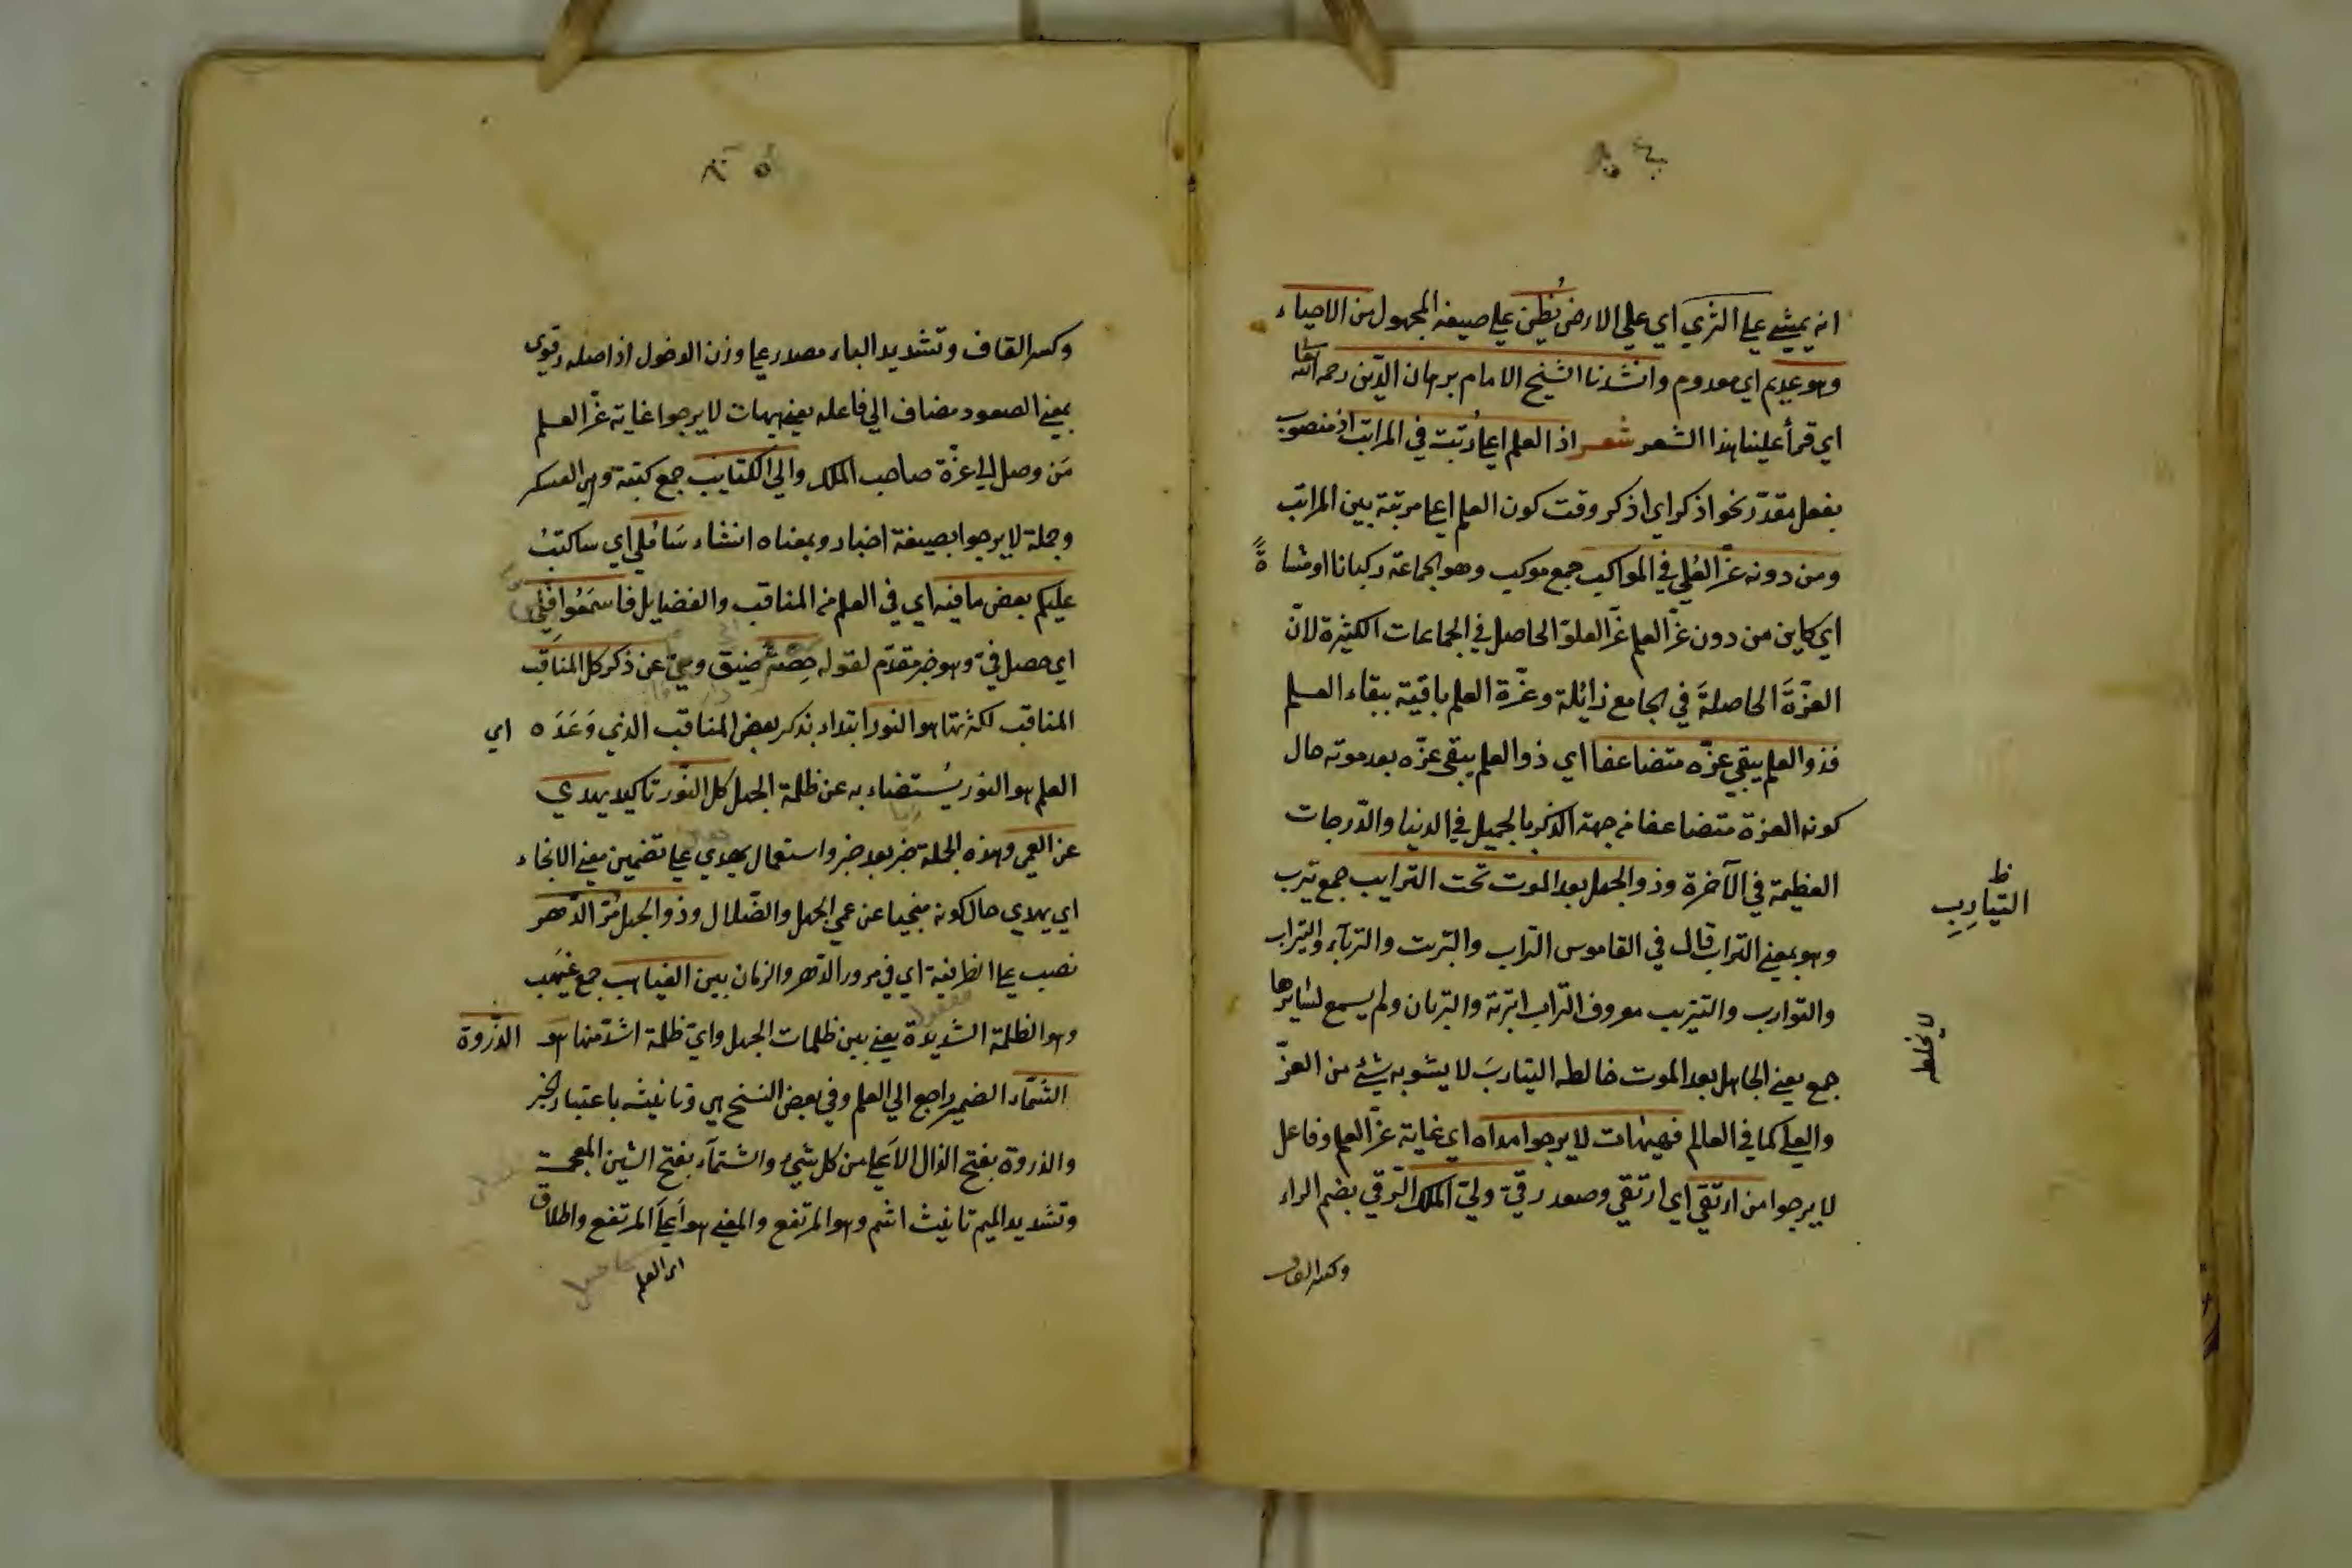 انه يمشي علي الثري اي علي الارض يُظن علي صيغة المجهول من الاحياء
وهو عديم اي معدوم وانشدنا الشيخ الامام برهان الدّين رحمه الله تعا
اي قرأ علينا هذا الشعر شعر اذ العلم اعلا رُتبت في المراتب اذ منصوب
بفعل مقدّر نحو اذكر اي اذكر وقت كون العلم اعلا مرتبة بين المراتب
ومن دونه عزّ العُلي في المواكب جمع موكب وهو الجماعة ركبانا او مشاةً
اي كاين من دون عزّ العلم عزّ العلوّ الحاصل في الجماعات الكثيرة لانّ
العزّةَ الحاصلةَ في المجامع زائلة وعزّة العلم باقية ببقاء العلم
فذو العلم يبقي عزّه متضاعفا اي ذو العلم يبقي عزّه بعد موته حال
كونه العزة متضاعفا من جهة الذكر بالجميل في الدنيا والدّرجات
العظيمة في الآخرة وذو الجهل بعد الموت تحت الترايب جمع تيرب
وهو بمعني التراب قال في القاموس التراب والتربت والتربآء والتيراب
والتوارب والتيرب معروف التراب اتربة والتربان ولم يسمع لسايرها
جمع يعني الجاهل بعد الموت خالطه التياربَ لا يشوبه شئ من العزّ
والعلي كما في العالم فهيهات لا يرجوا مداه اي غاية عزّ العلم وفاعل
لا يرجوا من ارتقي اي ارتقي وصعد رقيّ وليّ الملك الرّقي بضم الراء
وكسر القاف
ظ
التيارِبِ
لا يخلط
وكسر القاف وتشديد الياء مصدر علي وزن الدخول اذ اصله رقوي
بمعني الصعود مضاف الي فاعله يعني هيهات لا يرجوا غاية عزّ العلم
مَن وصل الي عزّة صاحب الملك والي الكتايب جمع كتبة وهي العسكر
وجملة لا يرجوا بصيغة اخبار وبمعناه انشاء سَاُملي اي ساكتبُ
عليكم بعض ما فيه اي في العلم من المناقب والفضايل فاسمَعُوا فبي
اي حصل فيّ وهو خبر مقدّم لقوله حِصَةٌ ضيق وعيّ عن ذكر كل المناقب
المناقب لكثرتها هو النور ابتداء بذكر بعض المناقب الذي وَعَدَه اي
العلم هو النور يُستضاء به عن ظلمة الجهل كل النّور تاكيد يهدي
عن العمي وهذه الجملة خبر بعد خبر واستعمال يهدي علي تضمين معني الانجاء
اي يهدي حال كونه منجيا عن عمي الجهل والضّلال وذو الجهل مَرّ الدّهر
نصب علي الظرفية اي في مرور الدّهر والزمان بين الغياهب جمع غيهَب
وهو الظلمة الشديدة يعني بين ظلمات الجهل وايّ ظلمة اشدّ منها هو الذّروة
الشَّمّاء الضمير راجع الي العلم وفي بعض النسخ هي وتانيثه باعتبار الخبر
والذروة بفتح الذال الاَعلي من كل شيء والشّمآء بفتح الشين المعجمة
وتشديد الميم تانيث اشم وهو المرتفع والمعني هو اَعلَي المرتفع واطلاق
اي العلم